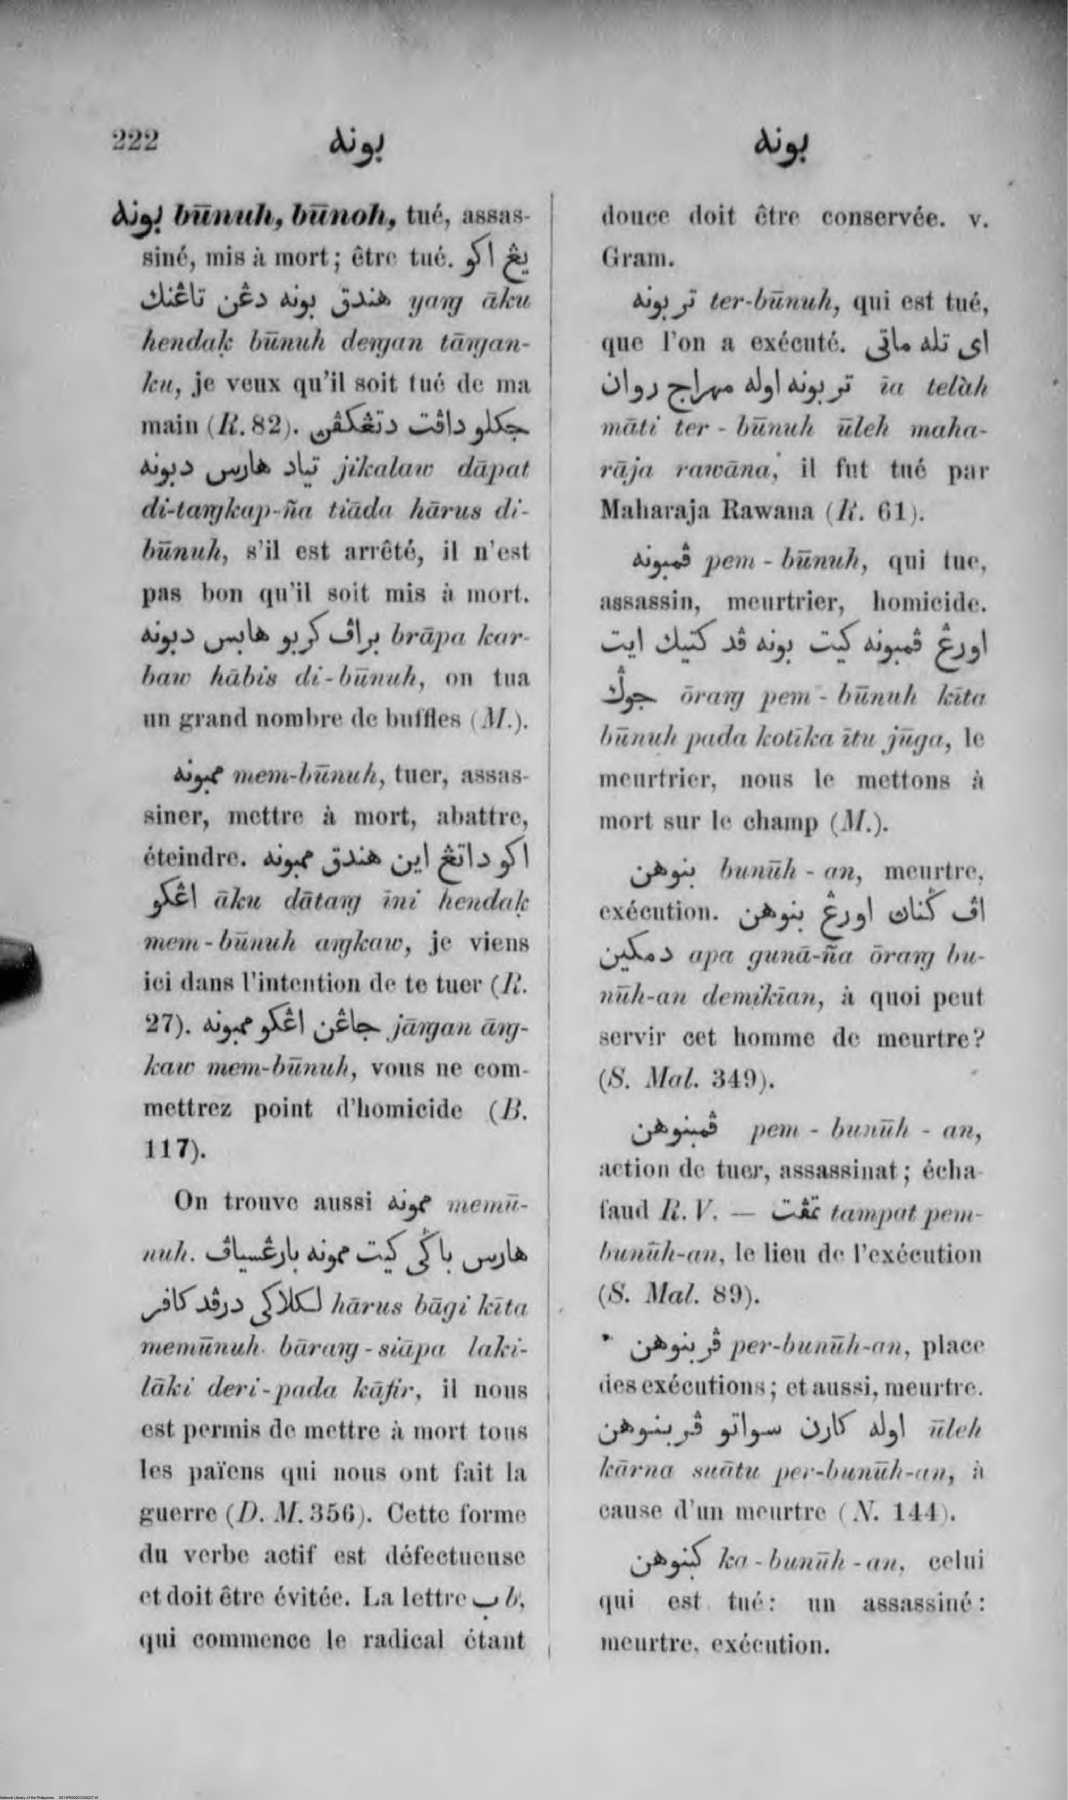 222 بونه بونه
بونه būnuh, būnoh, tué, assas-
siné, mis à mort; être tué. يڠ اكو
هندق بونه دڠن تاڠنك yaṅg āku
hendaḳ būnuh deṅgan tāṅgan-
ku, je veux qu'il soit tué de ma
main (R. 82). جكلو داڤت دتڠكڤڽ
تياد هارس دبونه jikalaw dāpat
di-taṅgkap-ña tiāda hārus di-
būnuh, s'il est arrêté, il n'est
pas bon qu'il soit mis à mort.
براڤ كربو هابس دبونه brāpa kar-
baw hābis di-būnuh, on tua
un grand nombre de buffles (M.).
ممبونه mem-būnuh, tuer, assas-
siner, mettre à mort, abattre,
éteindre. اكو داتڠ اين هندق ممبونه
اڠكو āku dātaṅg īni hendaḳ
mem-būnuh aṅgkaw, je viens
ici dans l'intention de te tuer (R.
27). جاڠن اڠكو ممبونه jāṅgan āṅg-
kaw mem-būnuh, vous ne com-
mettrez point d'homicide (B.
117).
On trouve aussi ممونه memū-
nuh. هارس باݢي كيت ممونه بارڠسياڤ
لكلاكي درڤد كافر hārus bāgi kīta
memūnuh bāraṅg-siāpa laki-
lāki deri-pada kāfir, il nous
est permis de mettre à mort tous
les païens qui nous ont fait la
guerre (D. M. 356). Cette forme
du verbe actif est défectueuse
et doit être évitée. La lettre ب b,
qui commence le radical étant
douce doit être conservée. v.
Gram.
تربونه ter-būnuh, qui est tué,
que l'on a exécuté. اي تله ماتي
تربونه اوله مهراج روان īa telàh
māti ter-būnuh ūleh maha-
rāja rawāna, il fut tué par
Maharaja Rawana (R. 61).
ڤمبونه pem-būnuh, qui tue,
assassin, meurtrier, homicide.
اورڠ ڤمبونه كيت بونه ڤد كتيك ايت
جوݢ ōraṅg pem-būnuh kīta
būnuh pada kotīka ītu jūga, le
meurtrier, nous le mettons à
mort sur le champ (M.).
بنوهن bunūh-an, meurtre,
exécution. اڤ ݢناڽ اورڠ بنوهن
دمكين apa gunā-ña ōraṅg bu-
nūh-an demikīan, à quoi peut
servir cet homme de meurtre?
(S. Mal. 349).
ڤمبنوهن pem-bunūh-an,
action de tuer, assassinat; écha-
faud R. V. — تمڤت tampat pem-
bunūh-an, le lieu de l'exécution
(S. Mal. 89).
ڤربنوهن per-bunūh-an, place
des exécutions; et aussi, meurtre.
اوله كارن سواتو ڤربنوهن ūleh
kārna suātu per-bunūh-an, à
cause d'un meurtre (N. 144).
كبنوهن ka-bunūh-an, celui
qui est tué: un assassiné:
meurtre, exécution.